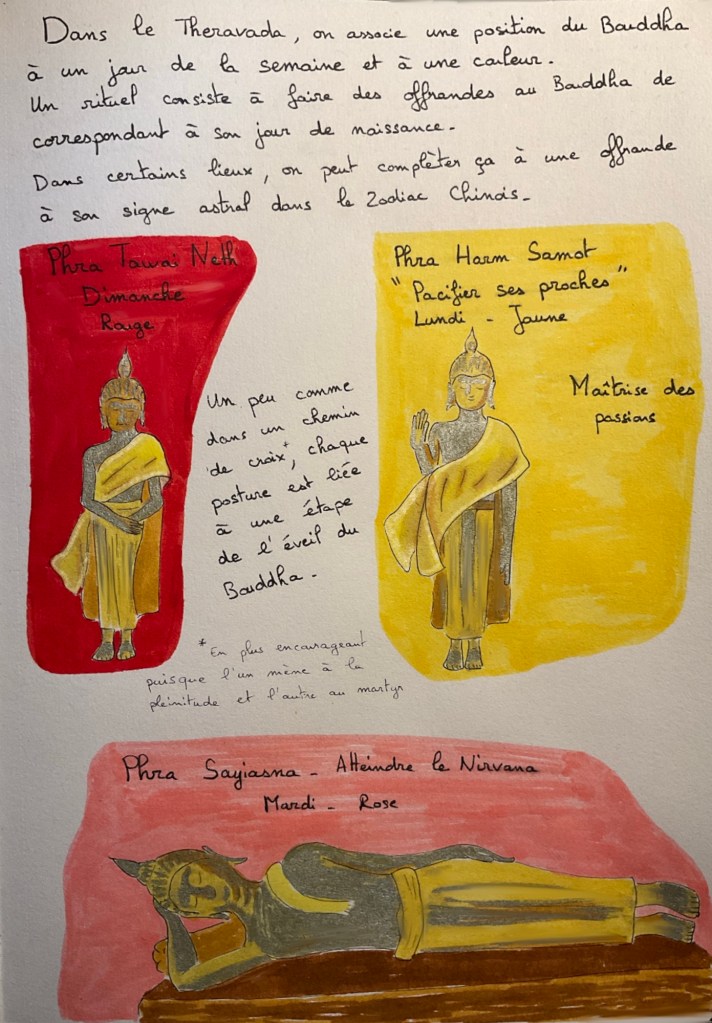 Dans le Theravada, on associe une position du Bouddha
à un jour de la semaine et à une couleur.
Un rituel consiste à faire des offrandes au Bouddha de
correspondant à son jour de naissance.
Dans certains lieux, on peut complèter ça à une offrande
à son signe astral dans le Zodiac Chinois.
Phra Tawai Neth
Dimanche
Rouge
Phra Harm Samot
"Pacifier ses proches"
Lundi - Jaune
Maîtrise des
passions
Un peu comme
dans un chemin
de croix*, chaque
posture est liée
à une étape
de l'éveil du
Bouddha.
* En plus encourageant
puisque l'un mène à la
pleinitude et l'autre au martyr
Phra Sayiasna - Atteindre le Nirvana
Mardi - Rose